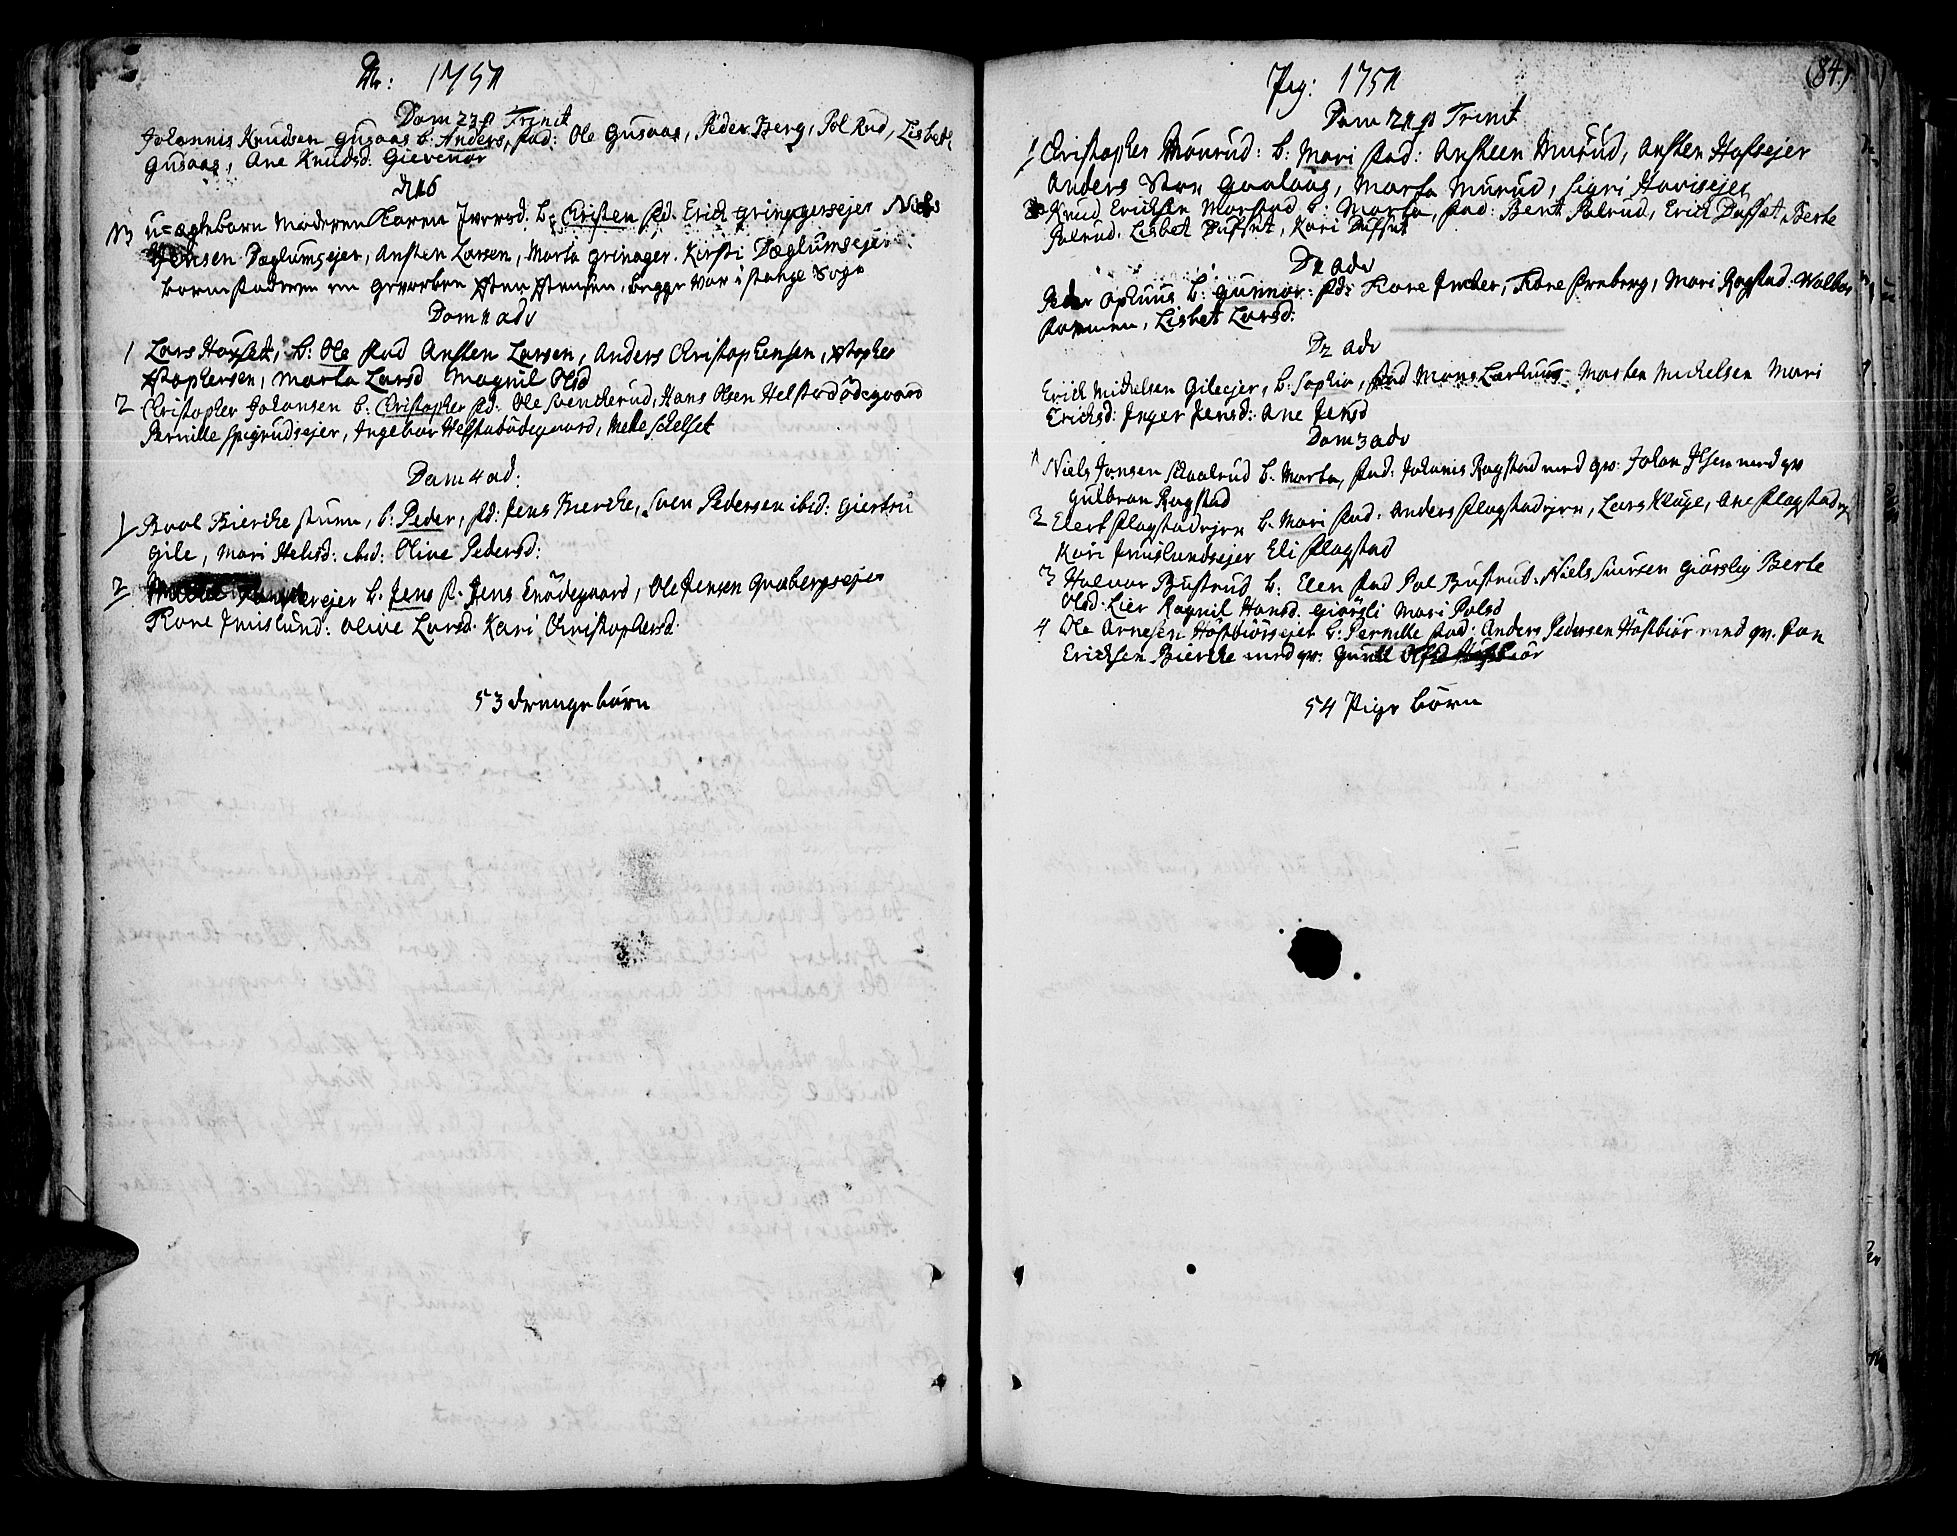 Dr: 1751
Dom 23 p Trinit
Johannis Knudsen Gusaas b: Anders, fad: Ole Gusaas, Peder Berg, Pol Rud, Lisbet
Gusaas, Ane Knudsd: Gievenor
d 16
u-ægte barn moderen Karen Iversd: b: Christen fd. Erich gringersejer Niels
Jensen Dæglumsejer, Ansten Larsen, Marta grinager. Kirsti Dæglumsejer
barnefaderen en begge var i Stange Sogn
Dom 1 adv
1 Lars b: Ole fad Ansten Larsen, Anders Christophersen, Xstopher
Xstophersen, Marta Larsd Magnil Olsd
2 Christopher Johansen b: Christopher fd: Ole Svenkerud, Hans Olsen Helstadödegaard
Pernille Spigrudsejer, Ingebor Helstadödegaard, Mette Schelset
Dom 4 ad:
1 Povel Biercke b: Peder, fd: Jens Biercke, Sven Pedersen ibid: giertru
gile, Mari ibid: Olive Pedersd:
2 b. Jens f. Jens Enödegaard, Ole Jensen Graabergsejer
Kare Imislund: Olive Larsd. Kari Christophersd
53 drenge börn
Pig: 1751
(84)
Dom 21 p Trinit
1 Christopher Mourud: b: Mari fad: Ansteen Murud, Ansten Hofsejer
Anders Stor Gaalaas, Marta Murud, Sigri Hovisejer
2 Knud Ericksen Morstad b: Marta, fad: Bent Palrud, Erich Dufset, Berte
Palrud. Lisbet Dufset, Kari Dufset
D 1 adv
Peder Ophuus b: Gunnor: fd: Kare Kare Mari Rogstad. Walbor
Lisbet Larsd:
D 2 adv
Erich Mickelsen Gilesejer, b: Sophia, fad Mons Larhuus Morten Mickelsen Mari
Ericksd: Inger Jensd: Ane Jensd
Dom 3 adv
1 Niels Jonsen b: Marta, fad: Johanis Rogstad med qv: Johan Ilsen med qv
Gulbran Rogstad
2 Elert b. Mari fad: Anders Lars Kluge, Ane
Kari Imislundsejer Eli Plagstad
3 Halvor Bustrud b: Elen fad Pol Bustrud. Niels Siversen Giörslig Berte
Olsd. Lier Ragnil Hansd. Giörsli Mari Polsd
4 Ole Arnesen Höstbiörsejer b: Pernille fad: Anders Pedersen Höstbiör med qv. Jan
Ericksen Biercke med qv:
54 Pige börn